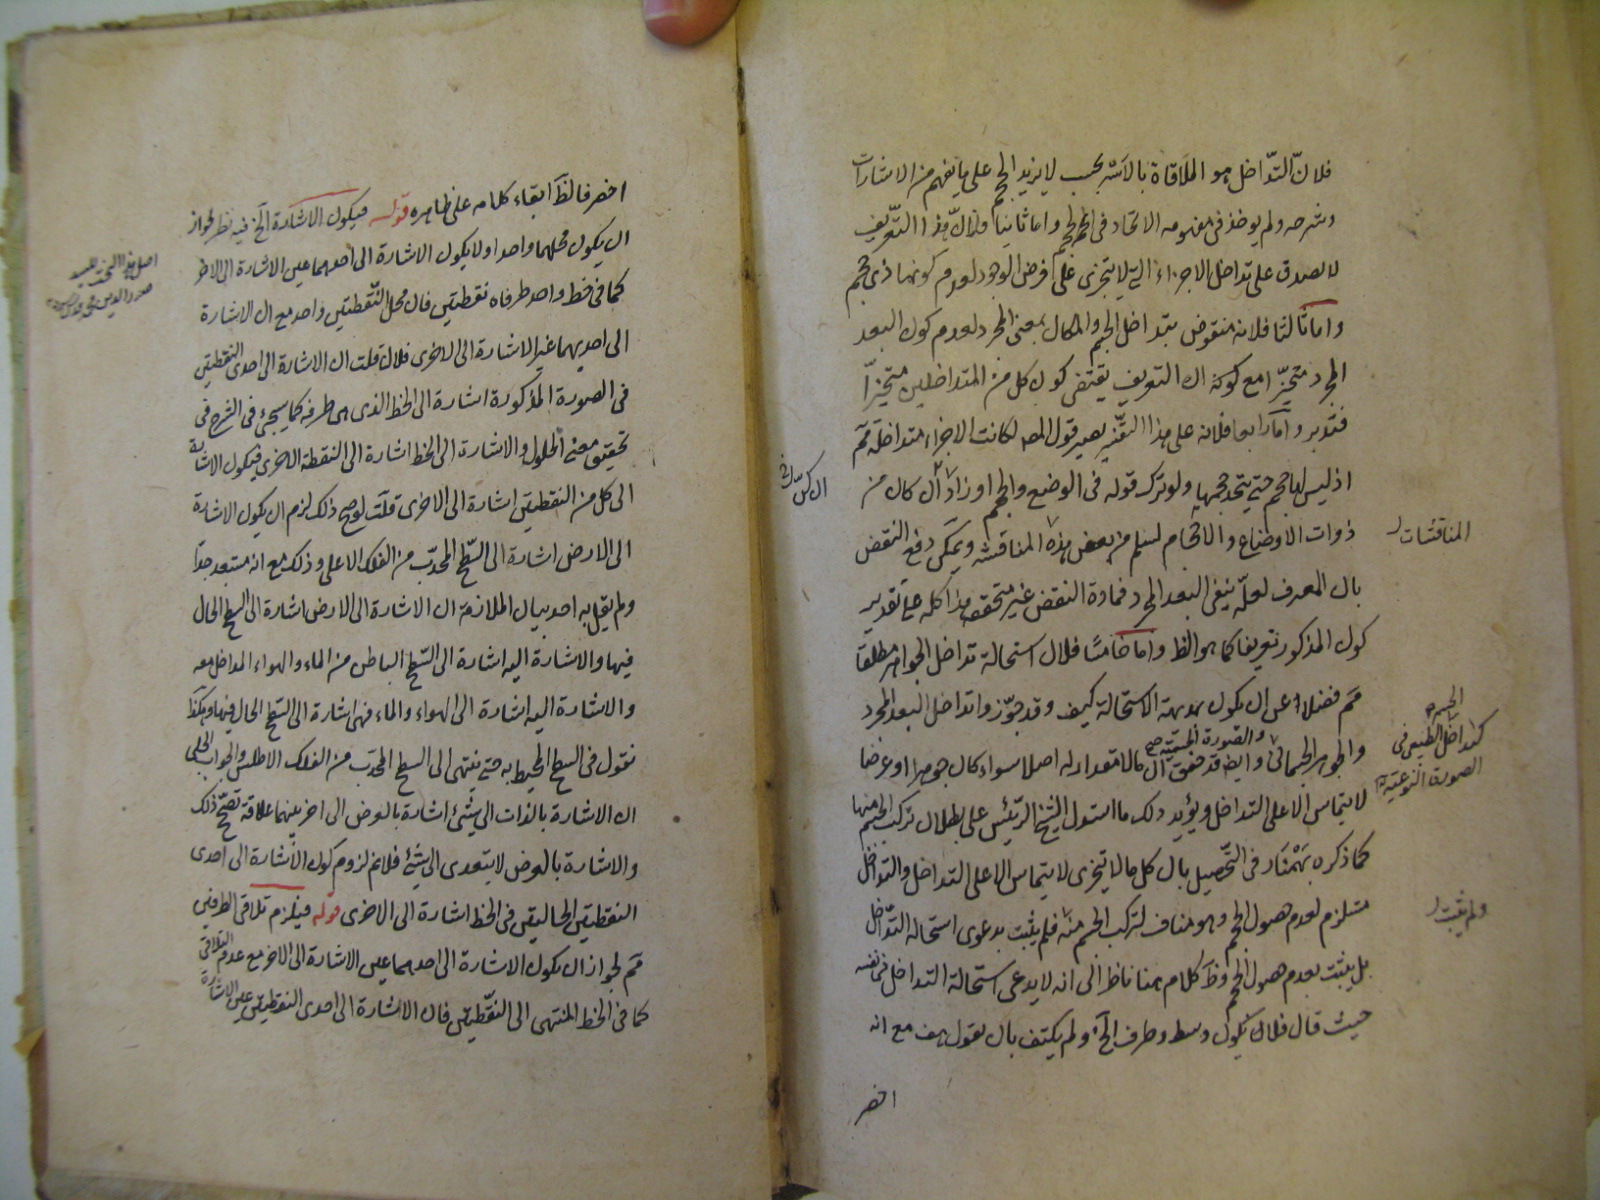 فلان التداخل هو الملاقاة بالاسر بحيث لا يزيد الحجم على ما يفهم من الاشارات
وشرحه ولم يوخذ فى مفهومه الاتحاد فى الحجم واما ثانيا فلان هذا التعريف
لا يصدق على تداخل الاجزاء التى لا يتجزى على فرض الوجود لعدم كونها ذى حجم
واما ثالثا فلانه منقوض بتداخل الجسم والمكان بمعنى المجرد لعدم كون البعد
المجرد متحيزا مع كونه ان التعريف يقتضى كون كل من المتداخلين متحيزا
فتدبر واما رابعا فلانه على هذا التقدير يصير قول المص لكانت الاجزاء متداخلة ثم
اذ ليس لها حجم حتى يتحد حجمها ولو ترك قوله فى الوضع والحجم او زاد ان كان من
ذوات الاوضاع والاحجام لسلم من بعض هذه المناقشة ويمكن دفع النقض
بان المعرف لعله ينفى البعد المجرد فمادة النقض غير متحققه هذا كله على تقدير
كون المذكور تعريفا كما هو الظ واما خامسا فلان استحالة تداخل الجواهر مطلقا
مم فضلا عن ان يكون بديهة الاستحالة كيف وقد جوزوا تداخل البعد المجرد
والجوهر الجسمانى وايضا قد حقق ان مالا مقدار له اصلا سواء كان جوهرا او عرضا
والصورة الجسمية صح
لا يتماس الا على التداخل ويؤيد ذلك ما استدل الشيخ الرئيس على بطلان تركب الجسم منها
كما ذكره بهمنيار فى التحصيل بان كل ما لا يتجزى لا يتماس الا على التداخل والتداخل
مستلزم لعدم حصول الحجم وهو مناف لتركب الجسم منه فلم يثبت بدعوى استحالة التداخل
بل يثبت بعدم حصول الحجم وظ كلامه هنا ناظر الى انه لا يدعى استحالة التداخل فى نفسه
حيث قال فلان يكون وسط وطرف الخ ولم يكتف بان يقول هف مع انه
اخصر
المناقشات
الجسمية
كتداخل الطبيعى فى
الصورة النوعية
ولم يثبت
اخصر فالظ ابقاء كلامه على ظاهره قوله فيكون الاشارة الخ فيه نظر لجواز
ان يكون محلهما واحدا ولا يكون الاشارة الى احدهما عين الاشارة الى الاخر
كما فى خط واحد طرفاه نقطتين فان محل النقطتين واحد مع ان الاشارة
الى احديهما غير الاشارة الى الاخرى فلان قلت ان الاشارة الى احدى النقطتين
فى الصورة المذكورة اشارة الى الخط الذى هى طرفه كما سيجئ فى الشرح فى
تحقيق معنى الحلول والاشارة الى الخط اشارة الى النقطة الاخرى فيكون الاشارة
الى كل من النقطتين اشارة الى الاخرى قلت لو صح ذلك لزم ان يكون الاشارة
الى الارض اشارة الى السطح المحدب من الفلك الاعلى وذلك مع انه مستبعد جدا
ولم يقل به احد بيان الملازمة ان الاشارة الى الارض اشارة الى السطح الحال
فيها والاشارة اليه اشارة الى السطح الباطن من الماء والهواء المداخل معه
والاشارة اليه اشارة الى الهواء والماء فهى اشارة الى السطح الحال فيها وهكذا
نقول فى السطح المحيط به حتى ينتهى الى السطح المحدب من الفلك الاطلس والجواب الحلى
ان الاشارة بالذات الى شئ اشارة بالعرض الى اخر بينهما علاقة تصحح ذلك
والاشارة بالعرض لا يتعدى الى شئ فلا نم لزوم كون الاشارة الى احدى
النقطتين الحاليتين فى الخط اشارة الى الاخرى قوله فيلزم تلاقى الطرفين
مم لجواز ان يكون الاشارة الى احدهما عين الاشارة الى الاخر مع عدم التلاقى
كما فى الخط المنتهى الى النقطتين فان الاشارة الى احدى النقطتين عين الاشارة
اصل هذا البحث للسيد
صدر الدين محمد